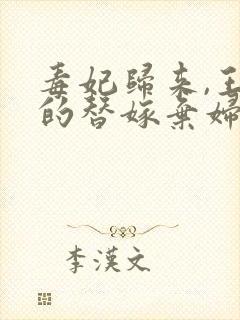 毒妃歸來,王
的替嫁棄婦
李漢文